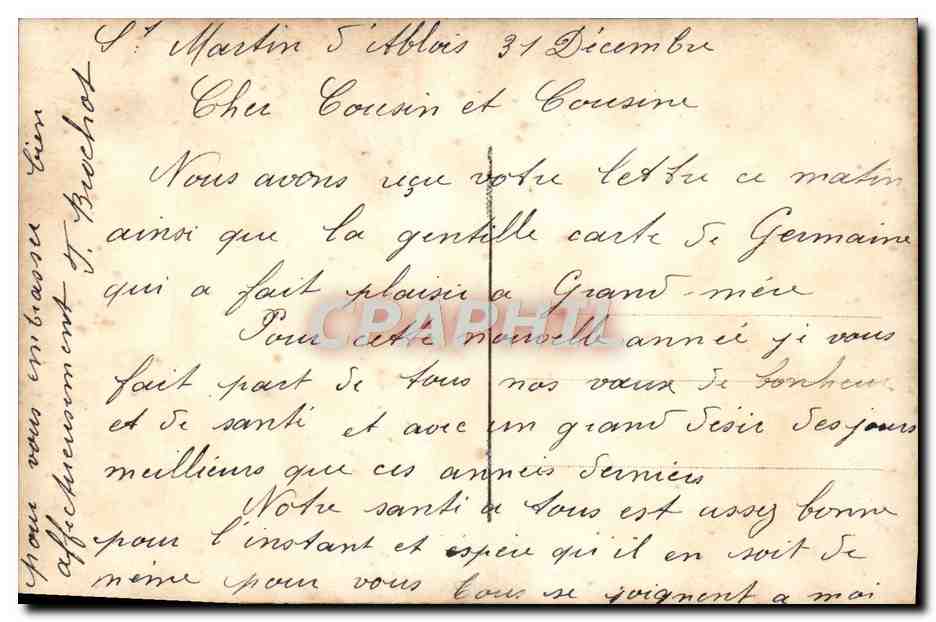 St Martin d'Ablois 31 Décembre
Cher Cousin et Cousine
Nous avons reçu votre lettre ce matin
ainsi que la gentille carte de Germaine
qui a fait plaisir a Grand-mère
Pour cette nouvelle année je vous
fait part de tous nos vœux de bonheur
et de santé et avec un grand désir des jours
meilleurs que ces années derniers
Notre santé a tous est assez bonne
pour l'instant et espère qu'il en soit de
même pour vous tous se joignent a moi
pour vous embrasser bien
affectueusement J. Brochot
CPAPHIL